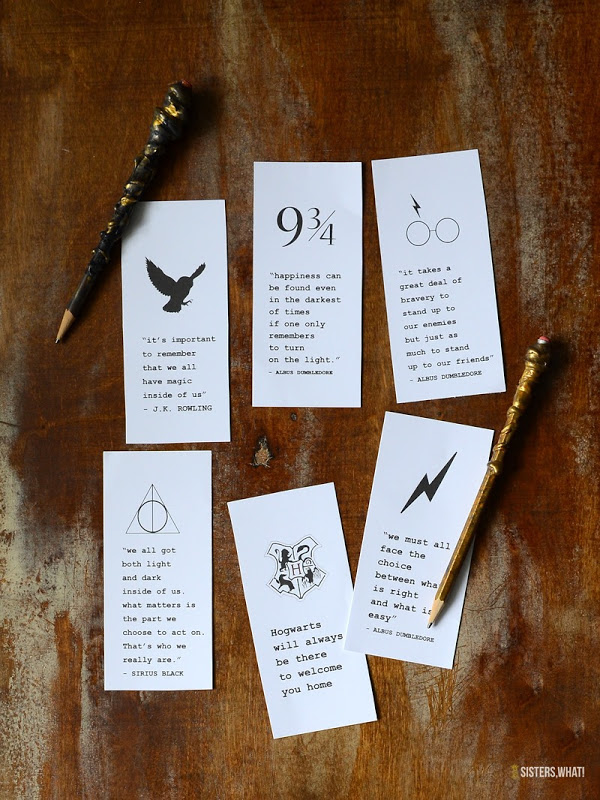 "it's important
to remember
that we all
have magic
inside of us"
- J.K. ROWLING
9¾
"happiness can
be found even
in the darkest
of times
if one only
remembers
to turn
on the light."
- ALBUS DUMBLEDORE
"it takes a
great deal of
bravery to
stand up to
our enemies
but just as
much to stand
up to our friends"
- ALBUS DUMBLEDORE
"we all got
both light
and dark
inside of us.
what matters is
the part we
choose to act on.
That's who we
really are."
- SIRIUS BLACK
H
Hogwarts
will always
be there
to welcome
you home
"we must all
face the
choice
between wha
is right
and what is
easy"
- ALBUS DUMBLEDORE
SISTERS,WHAT!